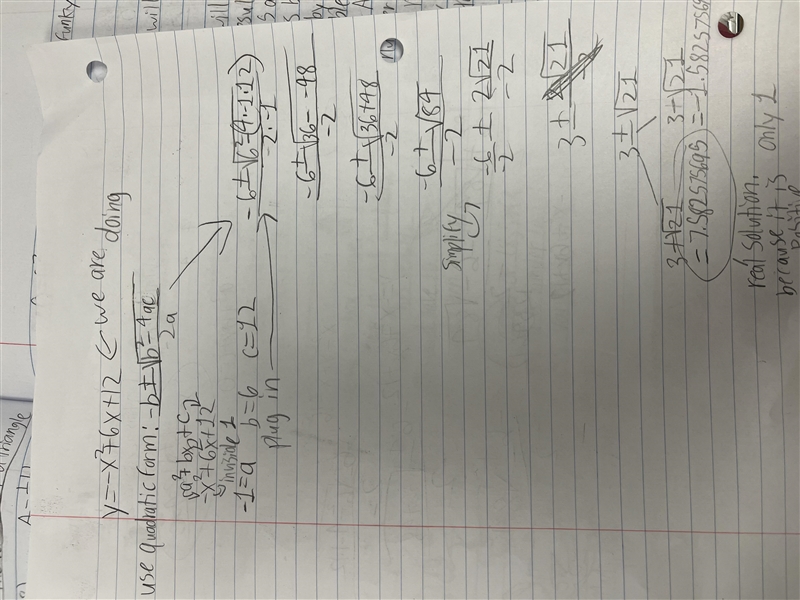 y=-x²+6x+12 ← we are doing
use quadratic form: -b±√b²-4ac
2a
ax²+bx+c
-x²+6x+12
invisible 1
-1=a b=6 c=12
plug in
-6±√6²-(4·-1·12)
-2·-1
-6±√36--48
-2
-6±√36+48
-2
-6±√84
-2
simplify
-6±2√21
-2
3±√21
3±√21
3+√21 3±√21
=7.582575695 =-1.582575695
real solution. only 1
because it is
positive
Funky
will
triangle